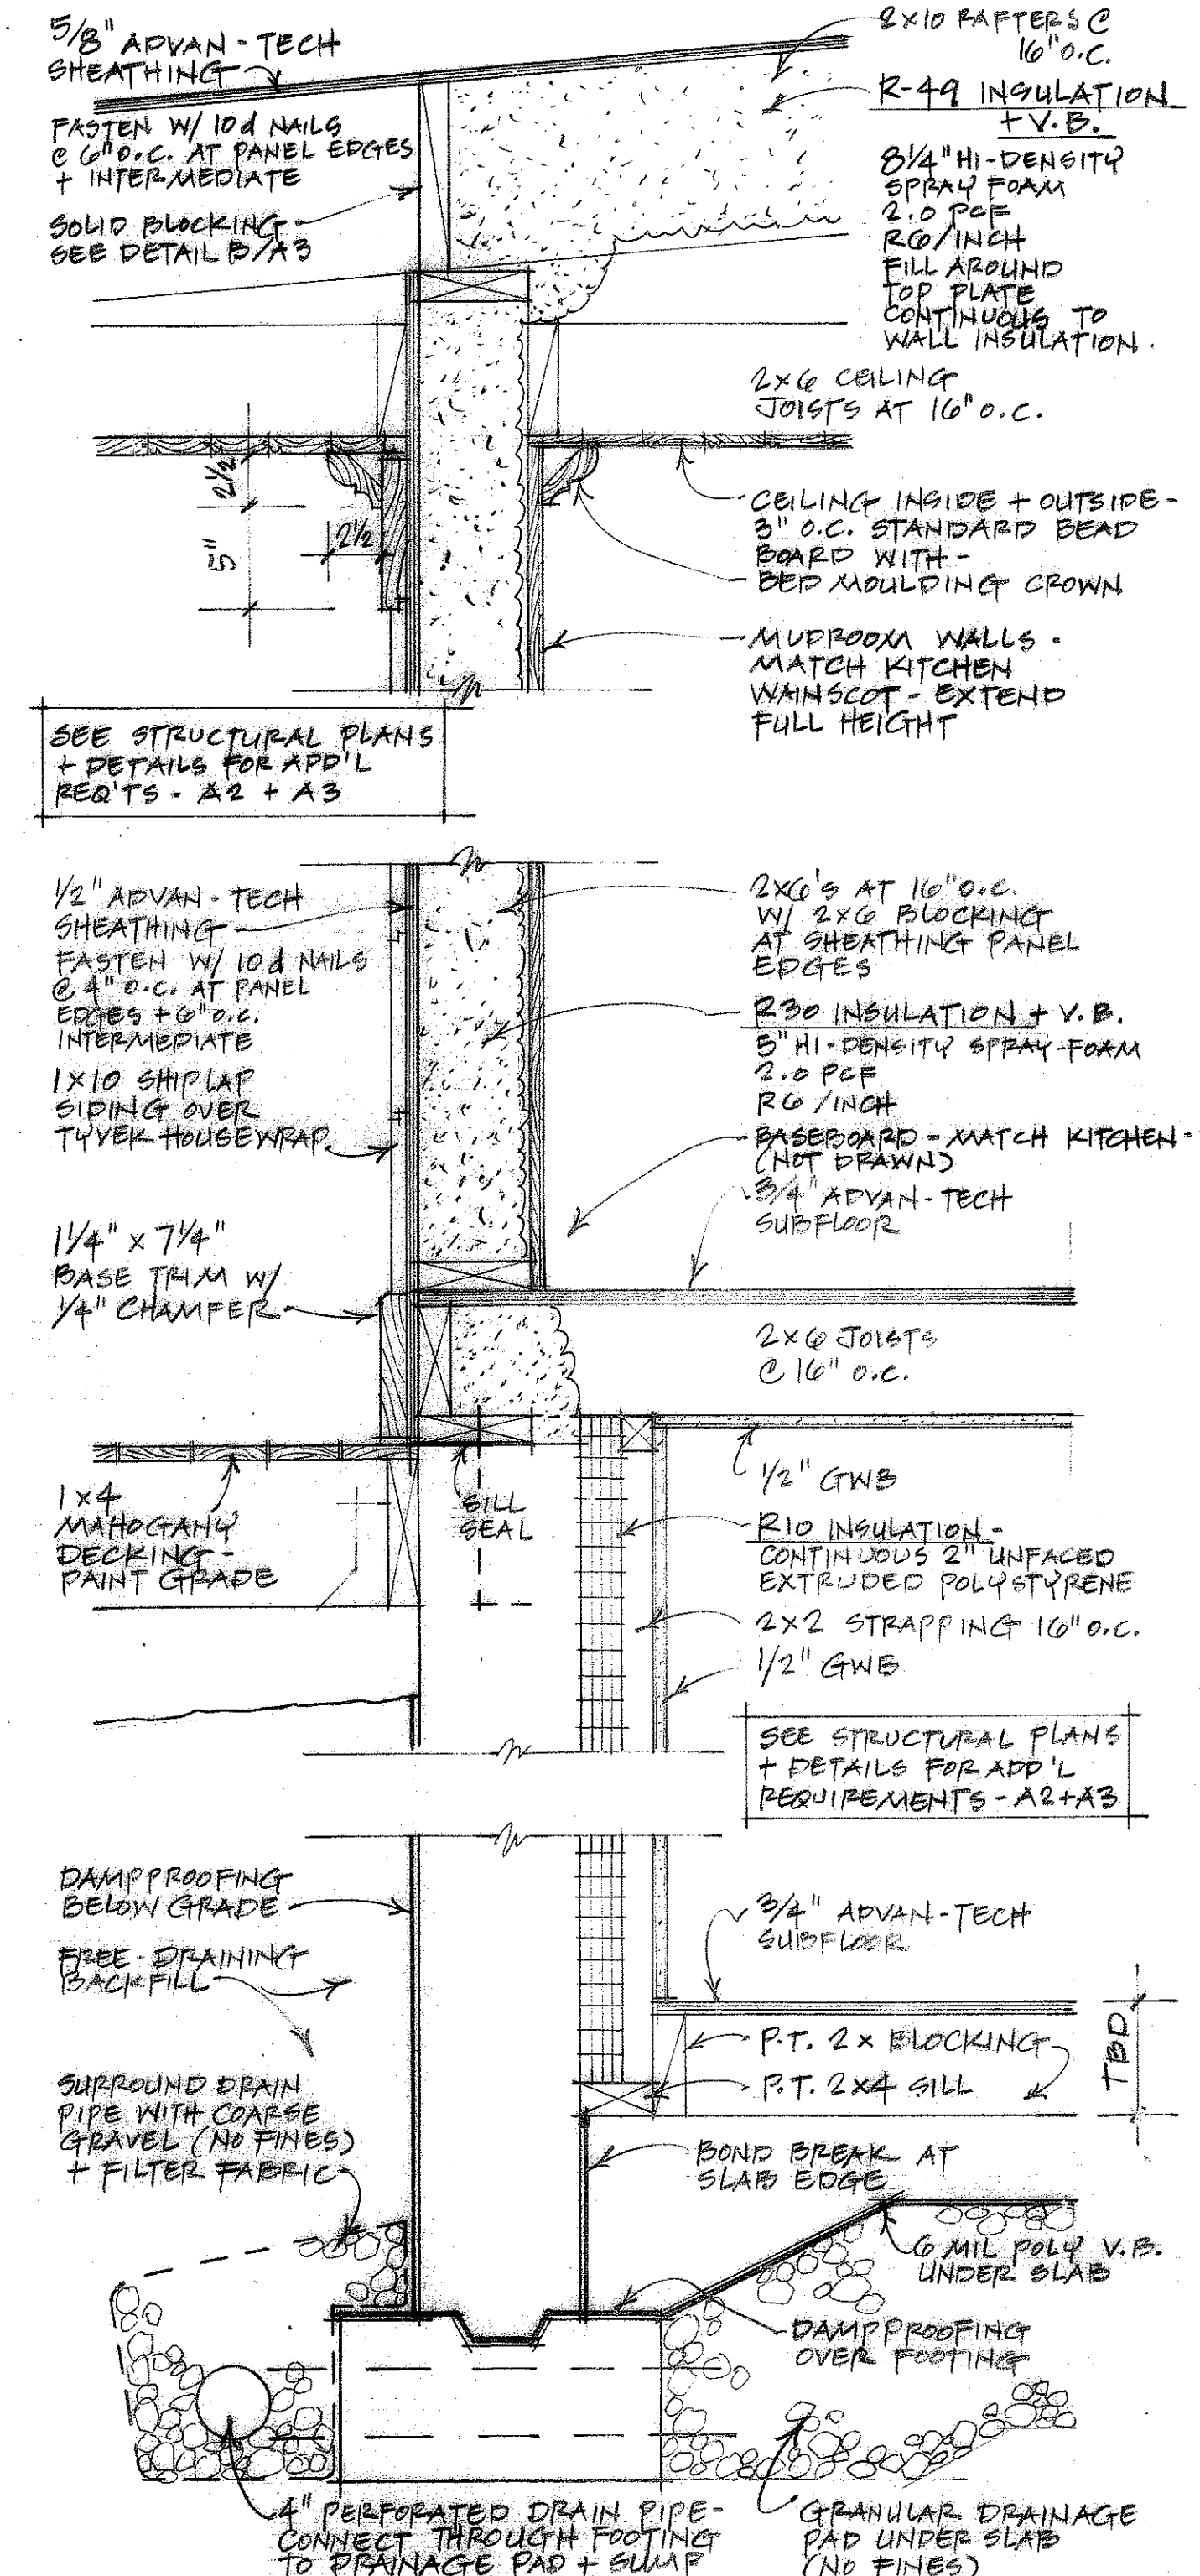 5/8" ADVAN-TECH
SHEATHING
FASTEN W/ 10d NAILS
@ 6" O.C. AT PANEL EDGES
+ INTERMEDIATE
SOLID BLOCKING -
SEE DETAIL B/A3
2X10 RAFTERS @
16" O.C.
R-49 INSULATION
+ V.B.
8 1/4" HI-DENSITY
SPRAY FOAM
2.0 PCF
R6/INCH
FILL AROUND
TOP PLATE
CONTINUOUS TO
WALL INSULATION.
2X6 CEILING
JOISTS AT 16" O.C.
2 1/2
2 1/2
5"
CEILING INSIDE + OUTSIDE -
3" O.C. STANDARD BEAD
BOARD WITH -
BED MOULDING CROWN
MUDROOM WALLS -
MATCH KITCHEN
WAINSCOT - EXTEND
FULL HEIGHT
SEE STRUCTURAL PLANS
+ DETAILS FOR ADD'L
REQ'TS - A2 + A3
1/2" ADVAN-TECH
SHEATHING
FASTEN W/ 10d NAILS
@ 4" O.C. AT PANEL
EDGES + 6" O.C.
INTERMEDIATE
1X10 SHIPLAP
SIDING OVER
TYVEK HOUSEWRAP
1 1/4" x 7 1/4"
BASE TRIM W/
1/4" CHAMFER
2X6'S AT 16" O.C.
W/ 2X6 BLOCKING
AT SHEATHING PANEL
EDGES
R30 INSULATION + V.B.
5" HI-DENSITY SPRAY-FOAM
2.0 PCF
R6/INCH
BASEBOARD - MATCH KITCHEN -
(NOT DRAWN)
3/4" ADVAN-TECH
SUBFLOOR
2X6 JOISTS
@ 16" O.C.
1X4
MAHOGANY
DECKING -
PAINT GRADE
SILL
SEAL
1/2" GWB
R10 INSULATION -
CONTINUOUS 2" UNFACED
EXTRUDED POLYSTYRENE
2X2 STRAPPING 16" O.C.
1/2" GWB
SEE STRUCTURAL PLANS
+ DETAILS FOR ADD'L
REQUIREMENTS - A2+A3
DAMPPROOFING
BELOW GRADE
FREE-DRAINING
BACKFILL
SURROUND DRAIN
PIPE WITH COARSE
GRAVEL (NO FINES)
+ FILTER FABRIC
3/4" ADVAN-TECH
SUBFLOOR
P.T. 2X BLOCKING
P.T. 2X4 SILL
TBD
BOND BREAK AT
SLAB EDGE
6 MIL POLY V.B.
UNDER SLAB
DAMPPROOFING
OVER FOOTING
4" PERFORATED DRAIN PIPE -
CONNECT THROUGH FOOTING
TO DRAINAGE PAD + SUMP
GRANULAR DRAINAGE
PAD UNDER SLAB
(NO FINES)